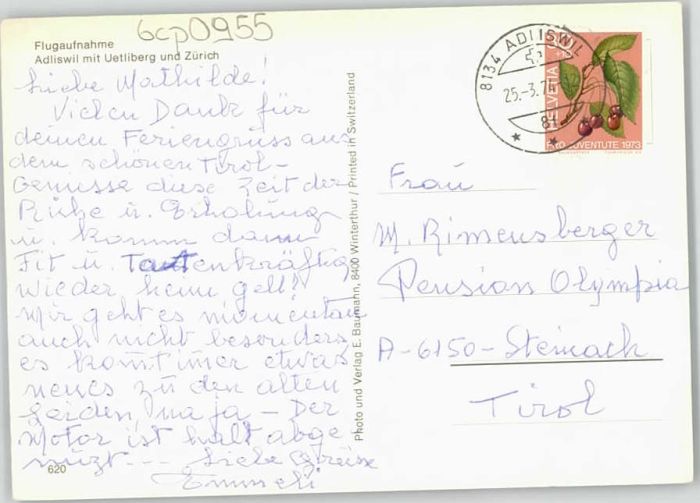 6cp0955
Flugaufnahme
Adliswil mit Uetliberg und Zürich
Liebe Mathilde!
Vielen Dank für
deinen Feriengruss aus
dem schönen Tirol-
Geniesse diese Zeit der
Ruhe u. Erholung
u. komm dann
Fit u. Tatenkräftig
wieder heim gell!
Mir geht es momentan
auch nicht besonders
es komt imer etwas
neues zu den alten
Leiden, na ja - Der
Motor ist halt abge
nüzt --- Liebe Grüsse
620
Photo und Verlag E. Baumann, 8400 Winterthur / Printed in Switzerland
8134 ADLISWIL
25.-3.74
HELVETIA
PRO JUVENTUTE 1973
Frau
M. Rimensberger
Pension Olympia
A-6150-Steinach
Tirol